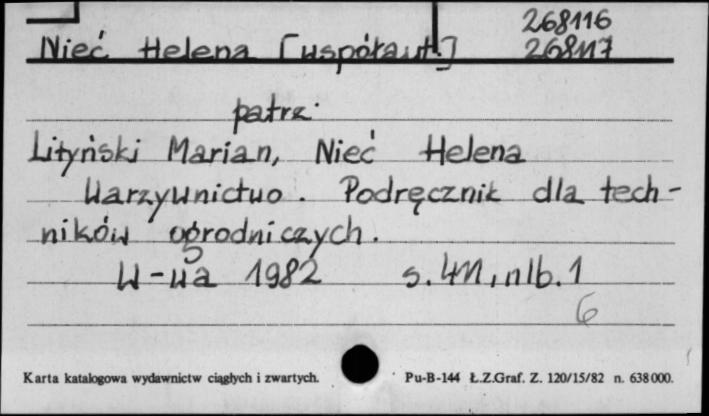 268116
Nieć Helena [współaut.] 268117
patrz
Lityński Marian, Nieć Helena
Warzywnictwo. Podręcznik dla tech-
ników ogrodniczych.
W-wa 1982 s. 411, nlb. 1
6
Karta katalogowa wydawnictw ciągłych i zwartych. Pu-B-144 Ł.Z.Graf. Z. 120/15/82 n. 638000.